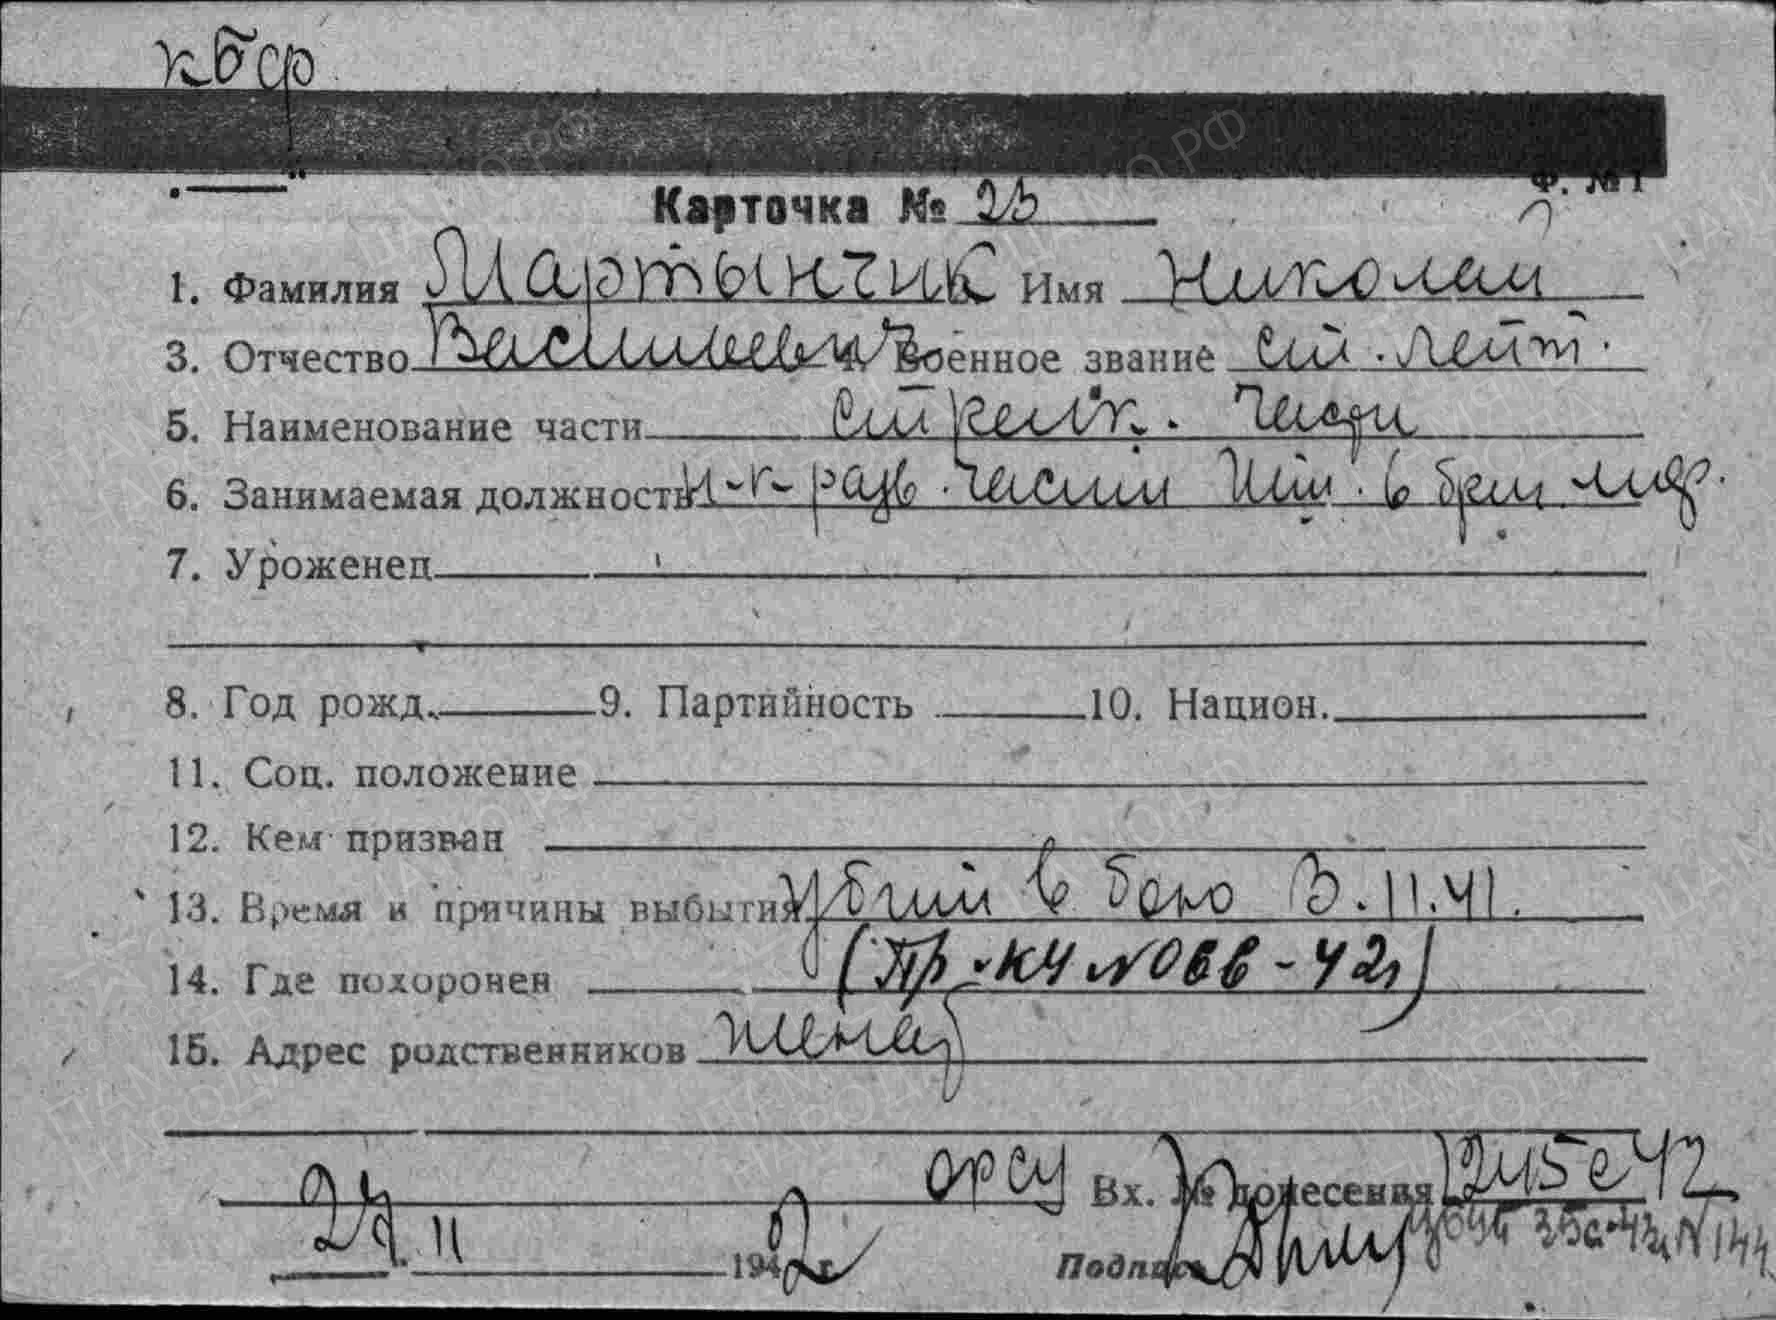 кбср
Ф. № 1
Карточка № 23
1. Фамилия Мартынчик Имя Николай
3. Отчество Васильевич 4. Военное звание ст. лейт.
5. Наименование части стрелк. части
6. Занимаемая должность н-к разв. части шт.
7. Уроженец
8. Год рожд. 9. Партийность 10. Национ.
11. Соц. положение
12. Кем призван
13. Время и причины выбытия убит в бою 3.11.41.
14. Где похоронен (Пр-к ЧN066-42г)
15. Адрес родственников жена
орсу Вх. № донесения 12415с 42
24.11 1942 г. Подпись